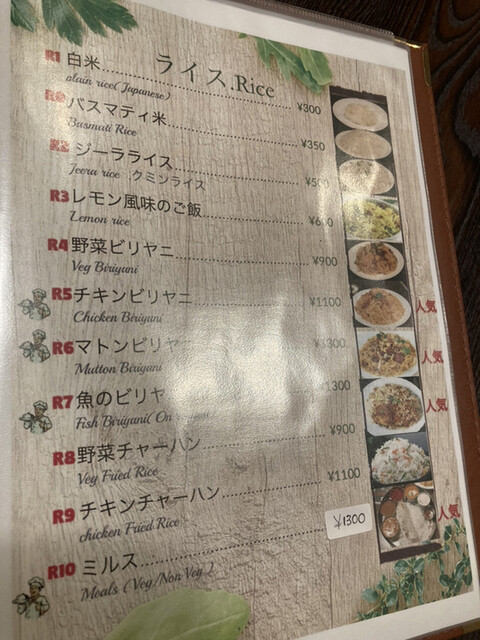 ライス.Rice
R1 白米 ¥300
plain rice(Japanese)
バスマティ米 ¥350
Basmati Rice
R2 ジーラライス
Jeera rice クミンライス
R3 レモン風味のご飯 ¥600
Lemon rice
R4 野菜ビリヤニ ¥900
Veg Biriyani
R5 チキンビリヤニ ¥1100
Chicken Biriyani
人気
R6 マトンビリヤ 300
Mutton Biriyani
人気
R7 魚のビリヤ 1300
Fish Biriyani(
人気
R8 野菜チャーハン ¥900
Veg Fried Rice
R9 チキンチャーハン ¥1100
chicken Fried Rice
R10 ミルス ¥1300
Meals (Veg/Non Veg)
人気